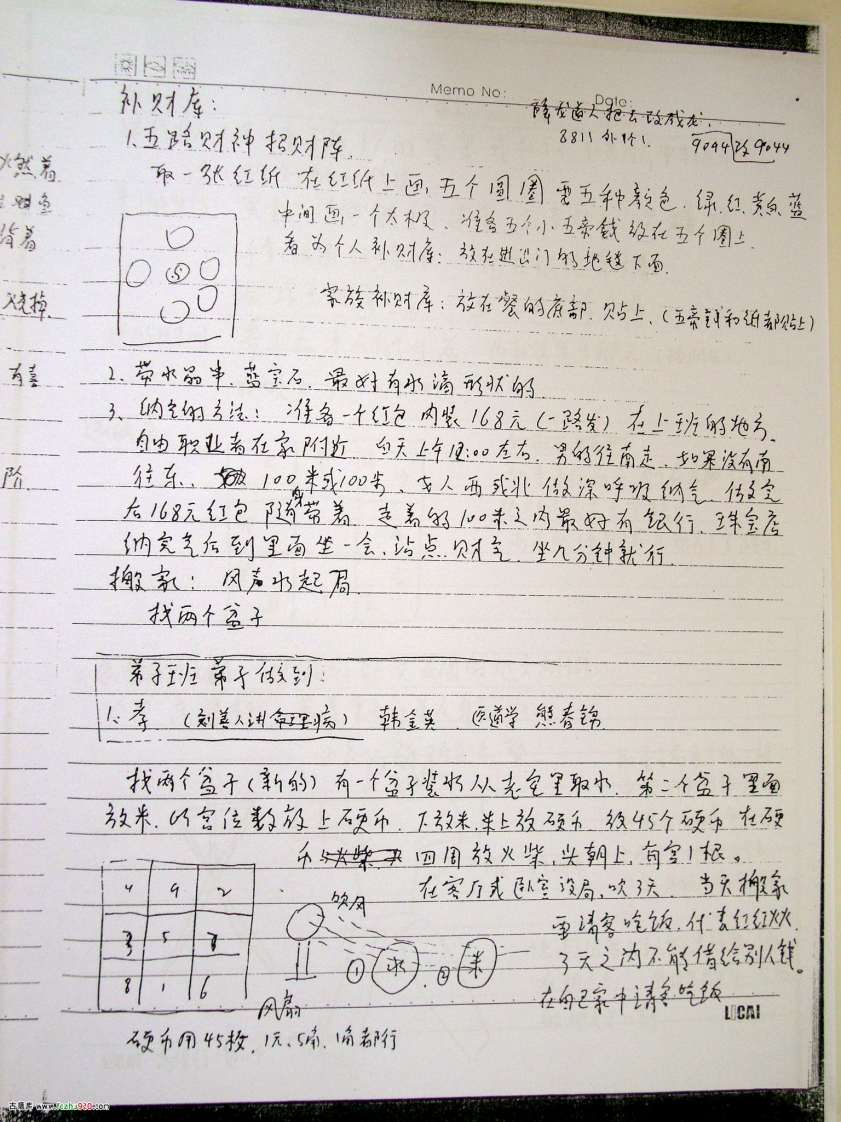 Memo No:
Date:
补财库:
降龙道人把去改成龙.
8811外914.
9094改9044
1、五路财神招财阵.
取一张红纸 在红纸上画,五个圆圈 要五种颜色.绿.红.黄白.蓝
中间画,一个太极、准备五个小五帝钱 放在五个圈上.
者为个人补财库: 放在进出门的地毯下面.
家族补财库: 放在餐的底部.贴上、(五帝钱和纸都贴上)
2、带水晶串、蓝宝石、最好有水滴形状的
3、纳气的方法: 准备一个红包 内装168元(一路发) 在上班的地方、
自由职业者在家附近 白天上午12:00左右、男的往南走、如果没有南
往东、 100米或100步、女人西或北 做深呼吸纳气、做完
后168元红包 随身带着 走着的100米之内最好有银行、珠宝店
纳完气后到里面坐一会、沾点.财气、坐几分钟就行.
搬家: 风声水起局.
找两个盆子
弟子班班 弟子做到:
1、孝 (刘善人讲命理病) 韩金英. 医道学 熊春锦.
找两个盆子(新的) 有一个盆子装水从老宅里取水、第二个盆子里面
放米、以宫位数放上硬币、下放米、米上放硬币 放45个硬币 在硬
币 四周放火柴、头朝上、每宫1根。
4 9 2
3 5 7
8 1 6
在客厅或卧室设局、吹3天、当天搬家
要请客吃饭、代表红红火火
3天之内不能借给别人钱。
在自己家中请客吃饭
吹风
① 水 . ② 米
风扇
硬币用45枚、1元、5角、1角都行
燃着
背着
烧掉
有喜
阶
LICAI